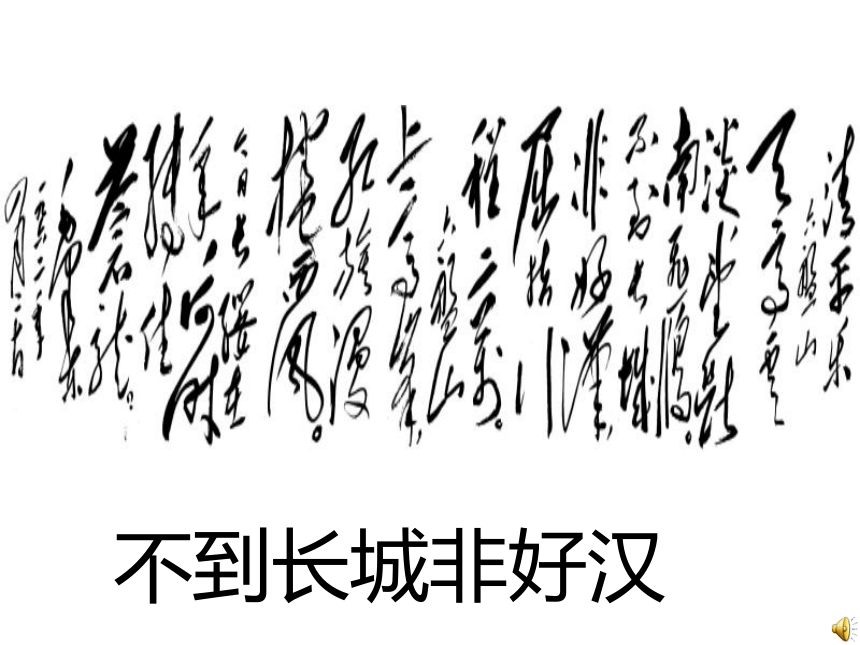 清平乐
六盘山
天高云
淡,望断
南飞雁。
不到长城
非好汉,
屈指行
程二万。
六盘山
上高峰,
红旗漫
卷西风。
今日长缨在
手,何时
缚住
苍龙?
毛泽东
不到长城非好汉